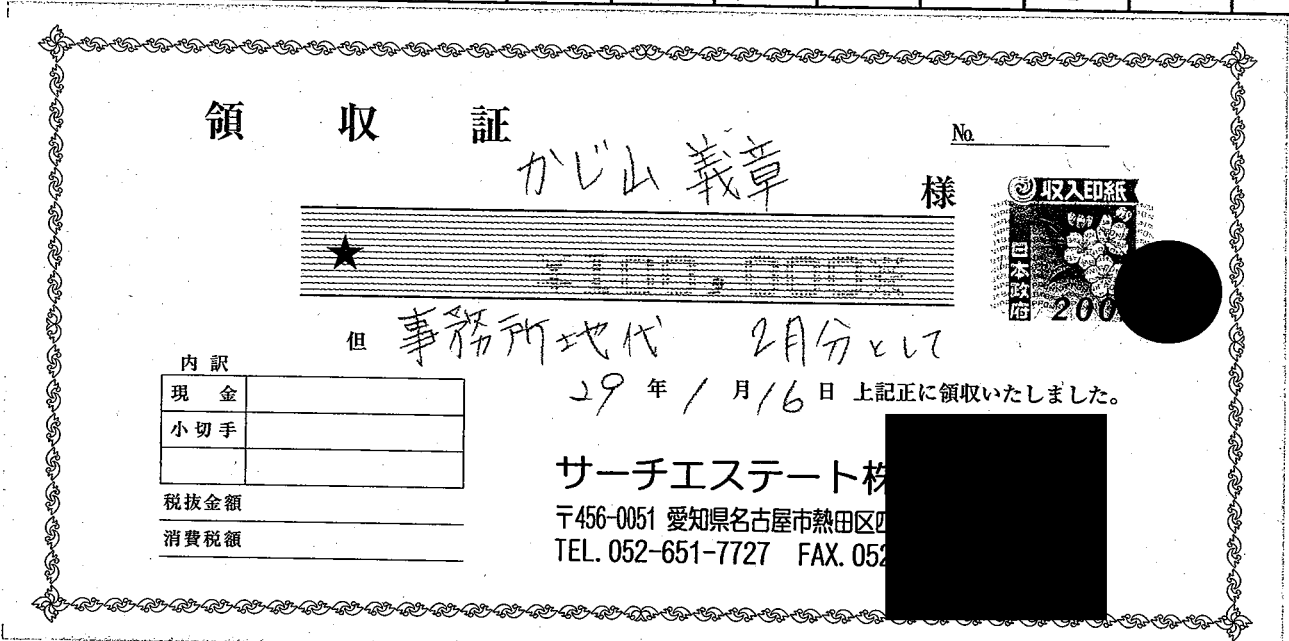 領収証
No.
かじ山 義章 様
収入印紙
日本政府
200
★ ¥100,000※
但 事務所地代 2月分として
29年1月16日 上記正に領収いたしました。
内訳
現金
小切手
税抜金額
消費税額
サーチエステート株
〒456-0051 愛知県名古屋市熱田区四
TEL.052-651-7727 FAX.052